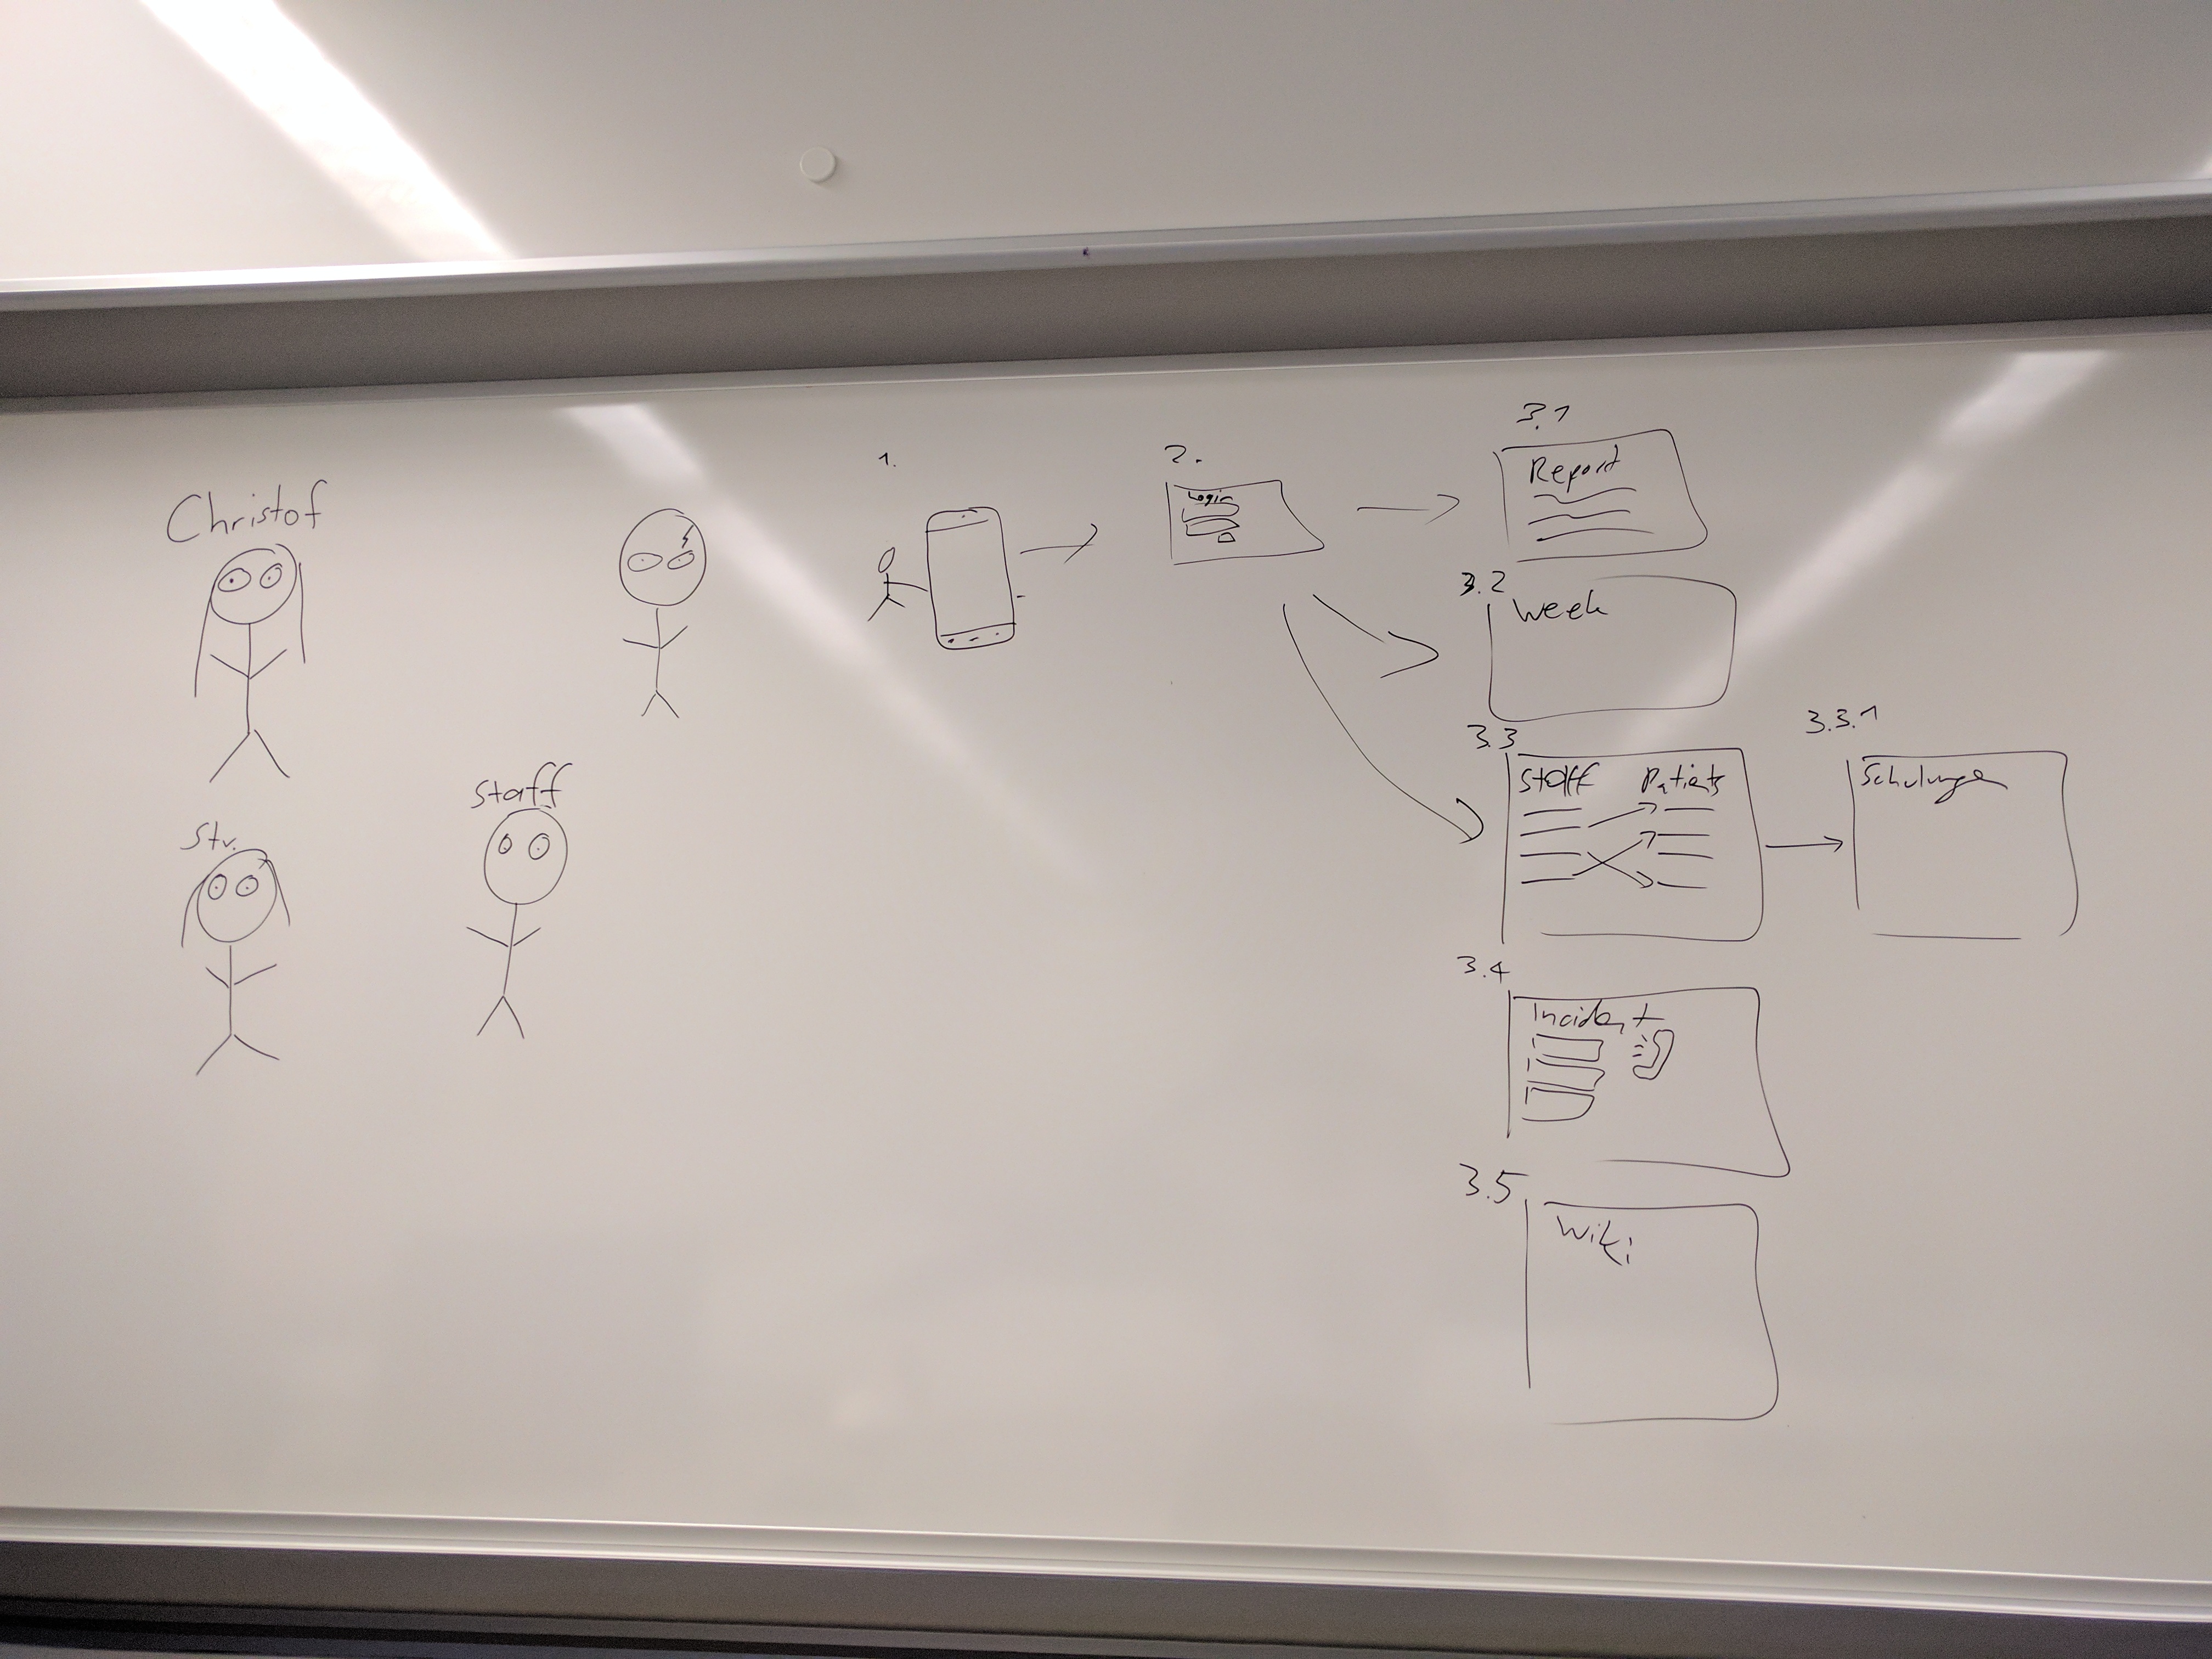 Christof
Stv.
Staff
1.
2.
Login
3.1
Report
3.2
Week
3.3
Staff Patients
3.3.1
Schulungen
3.4
Incident
3.5
Wiki